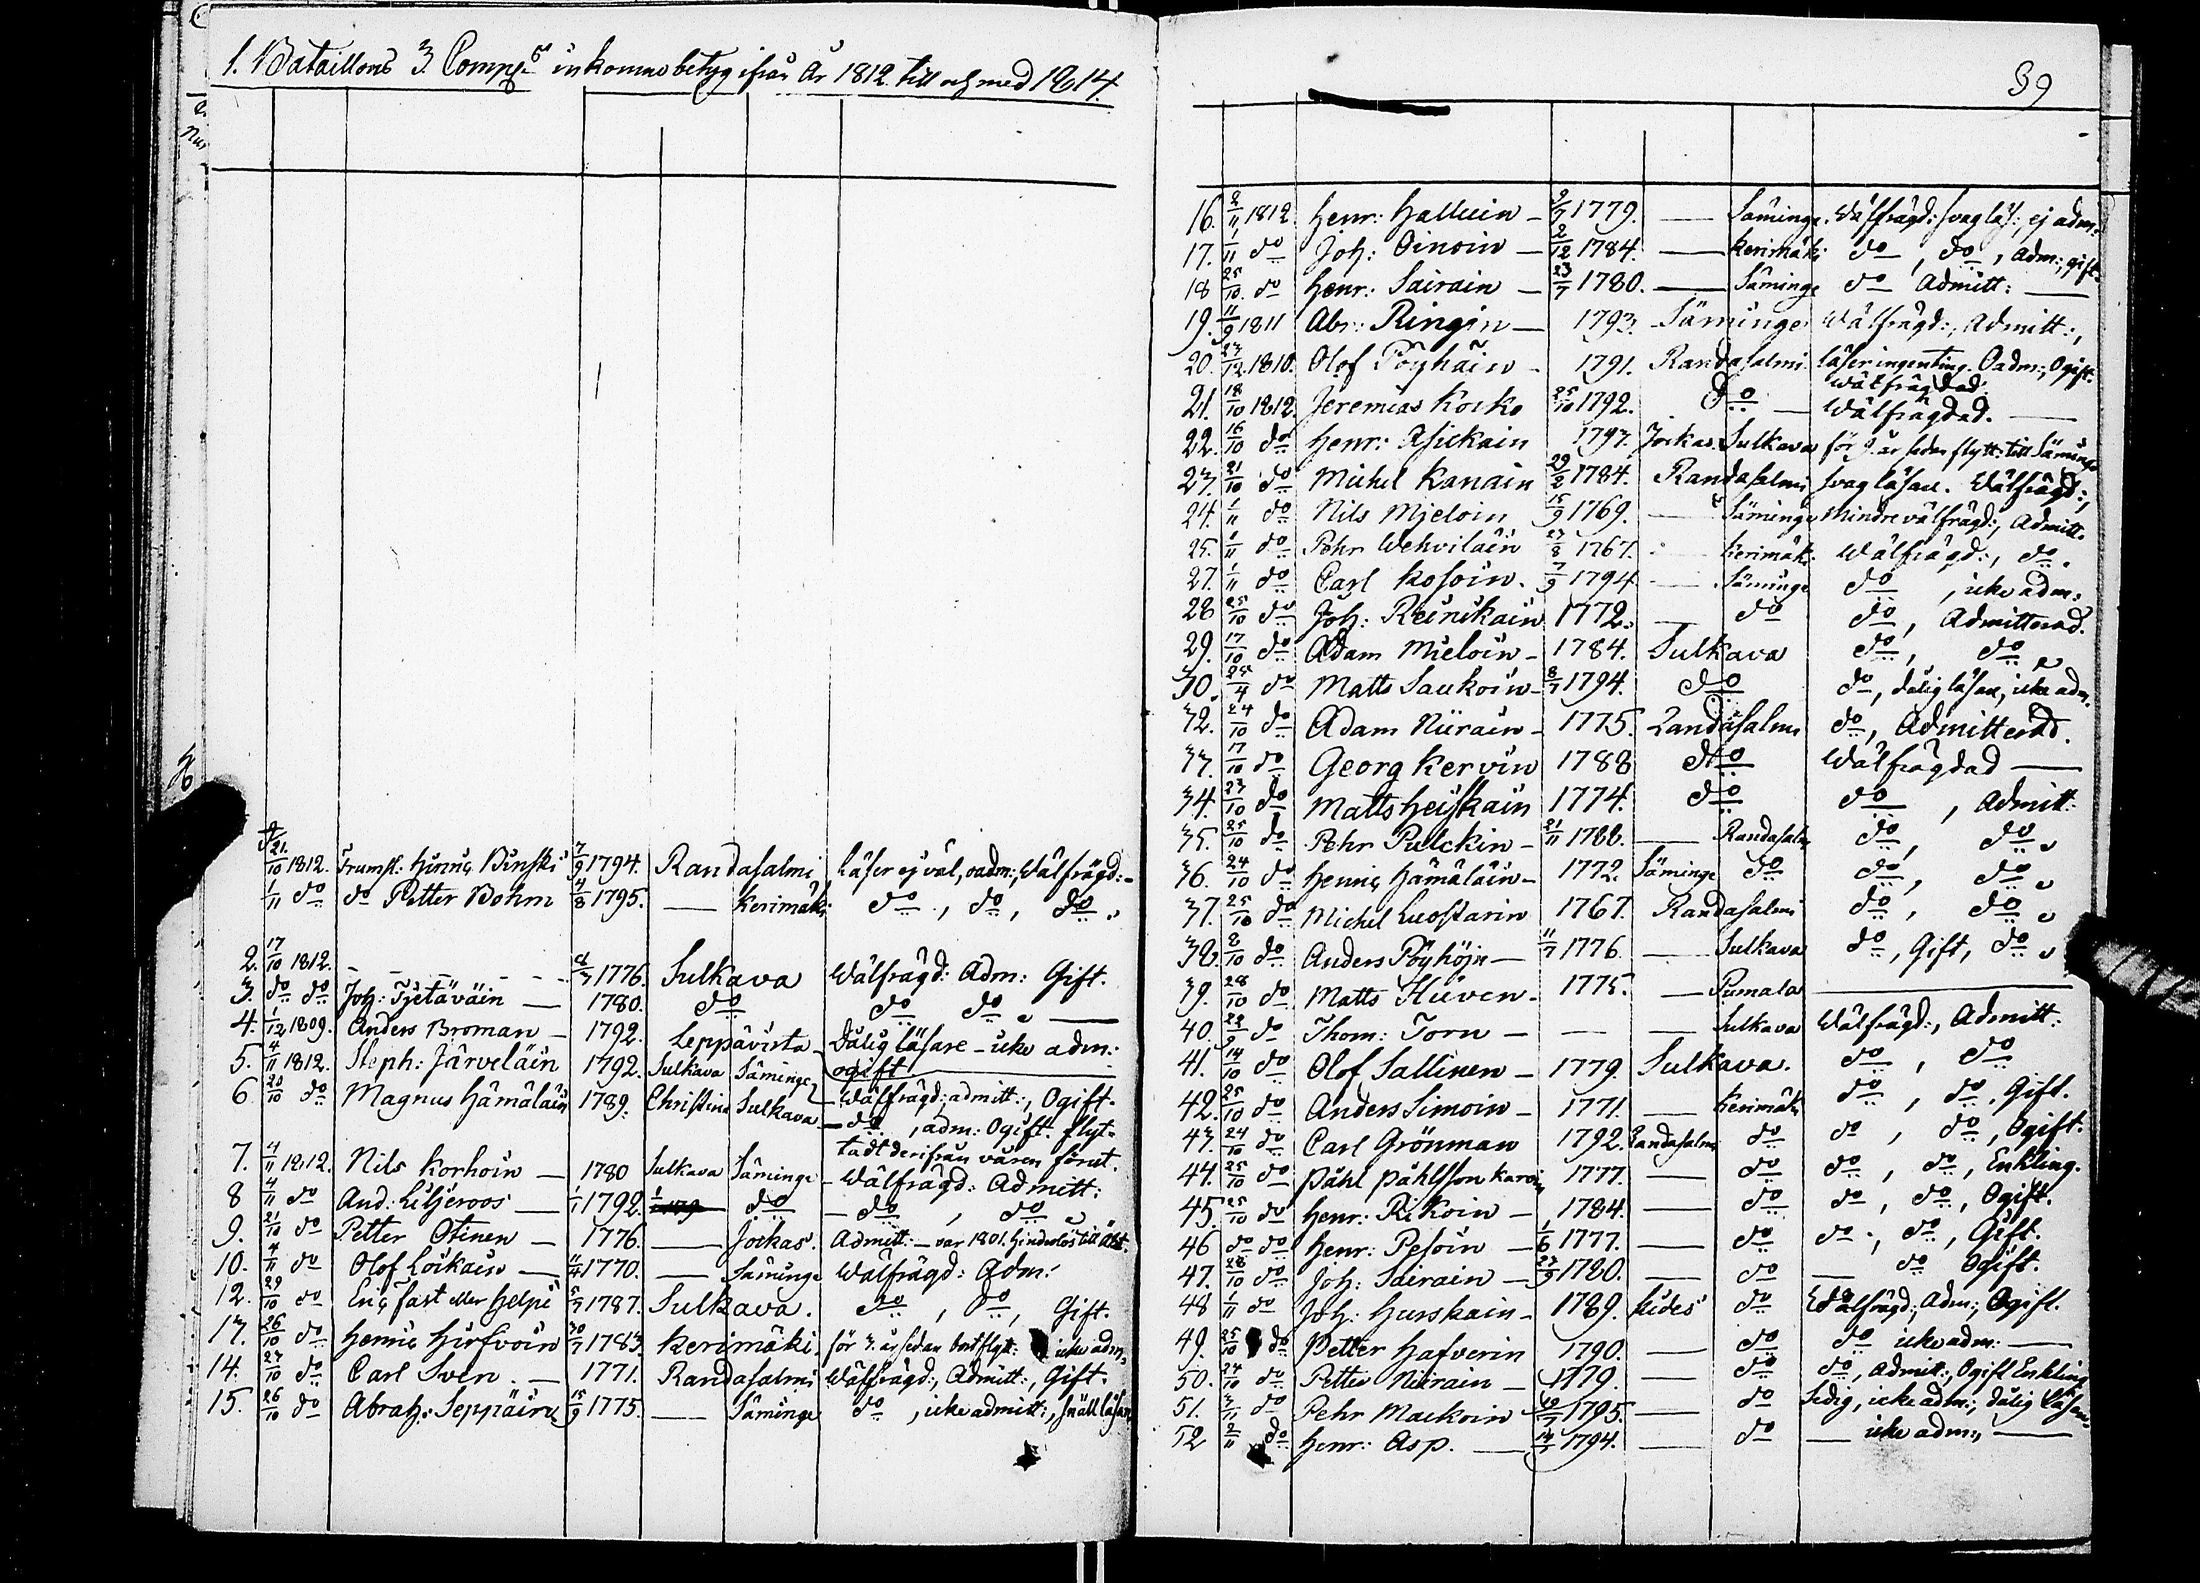 1. Bataillons 3. Comp:s inkomne betyg ifrån År 1812 till och med 1814.
21/10 1812. Trumsl: Hinric Binski 7/9 1794. Randasalmi läser ej väl, oadm:, Wälfrägd:
1/11 do do Petter Bohm 4/8 1795. — Kerimäki do, do, do
2. 17/10 1812. - - - - 4/3 1776. Sulkava Wälfrägd: Adm: Gift.
3. do do Joh: Tjetäväin — 1780. do do do —
4. 1/12 1809. Anders Broman — 1792. Leppävirta Dålig läsare - icke adm:
5. 4/11 1812. Steph: Järveläin 1792. Sulkava Säminge ogift
6 20/10 do Magnus Hämäläin 1789. Christina Sulkava Wälfrägd: admitt:, Ogift.
do, adm: Ogift. flyt=
tadt derifrån våren förut.
7. 4/11 1812. Nils Korhoin — 1780 Sulkava Säminge - Wälfrägd: Admitt:
8 4/11 do And: Liljeroos — 1/1 1792. do - do, do
9. 21/10 do Petter Otinen — 1776. — Jockas. Admitt: — var 1801. hinderlös till äkt.
10. 4/11 do Olof Loikain — 11/4 1770. — Säminge Wälfrägd: Adm:
12. 29/10 do Eric Fast eller Helpi 5/3 1787. Sulkava. do, do, Gift.
13. 26/10 do Henric Hirfvoin 30/7 1783 Kerimäki. för 3. år sedan bortflytt: icke adm.
14. 23/10 do Carl Sven. — 1771. Randasalmi Wälfrägd:, Admitt:, Gift.
15. 26/10 do Abrah: Seppäin 15/9 1775. — Säminge do, icke admitt:, snäll läsare
39
16. 2/11 1812. Henr: Halluin — 9/7 1779. — Säminge. Wälfrägd: svag läs:, ej adm:
17. 1/11 do Joh: Oinoin — 2/12 1784. — Kerimäki do, do, adm:, gift.
18 25/10. do Henr: Sairain — 23/7 1780. — Säminge do Admitt: —
19. 11/9 1811 Abr: Ringin — 1793. Säminge Wälfrägd:, Admitt:,
20. 23/12. 1810. Olof Pöyhäin - 1791. Randasalmi läser ingenting. Oadm:, Ogift.
Wälfrägdad.
21. 18/10 1812. Jeremias Korko 25/10 1792. do — Wälfrägdad. —
22. 16/10 do Henr: Asickain 1793. Jockas. Sulkava för 9. år sedan flytt: till Säminge
23. 21/10 do Michel Kanain 29/2 1784. Randasalmi svag läsare. Wälfrägd:,
24. 1/11 do Nils Mjeloin 15/9 1769. — Säminge Mindre välfrägd:, Admitt.
25. 1/11 do Pehr Wehviläin 27/8 1767. Kerimäk. Wälfrägd:, do
27. 1/11 do Carl Kosoin. 7/9 1794 — Säminge do, icke adm:
28 25/10 do Joh: Reinikain 1772. — do do, Admitterad.
29. 17/10 do Adam Mieloin — 1784. Sulkava do, do
30. 25/4 do Matts Saukoin — 8/7 1794. do do, dålig läsare, icke adm.
32. 24/10 do Adam Niirain — 1775. Randasalmi do, Admitterad.
33. 17/10 do Georg Kervin 1788 do Wälfrägdad —
34. 23/10 do Matts Heiskain 1774. do do, Admitt:
35. 25/10 do Pehr Pulckin — 21/11 1788. — Randasalm do, do
36. 24/10 do Henric Hämäläin — 1772. Säminge do do, do
37. 25/10 do Michel Luostarin 1767. Randasalmi do, do
38. 8/10 do Anders Pöyhöin — 11/7 1776 — Sulkava do, Gift, do
39. 28/10 do Matts Hüven — 1775. — Pumala —
40. 22/9 do Thom: Torn — — — Sulkava Wälfrägd:, Admitt:
41. 14/10 do Olof Sallinen — 1779. Sulkava. do, do
42. 25/10 do Anders Simoin — 1771. — Kerimäki do, do, Gift.
43. 24/10 do Carl Grönman 1792. Randasalmi do do, do, Ogift.
44. 25/10 do Påhl Påhlsson Karvin 1777. — do do, do, Enkling.
45. 25/10 do Henr: Rikoin — 1784. — do do, do, Ogift.
46 do do Henr: Pesoin — 1/6 1777. — do do, do, Gift.
47. 28/10 do Joh: Sairain — 23/9 1780. — do — do Ogift.
48 1/11 do Joh: Hurskain — 1789. Kides do Wälfrägd:, Adm:, Ogift.
49. 25/10 do Petter Hafverin 1790. — do do icke adm: —
50. 24/10 do Petter Niirain — 1779. — do do, Admit:, Ogift Enkling
51. 3/11 do Pehr Mackoin 10/7 1795. — do Ledig, icke adm:, dålig läsare
52 2/11 do Henr: Asp. — 14/1 1794. — do — icke adm:, —